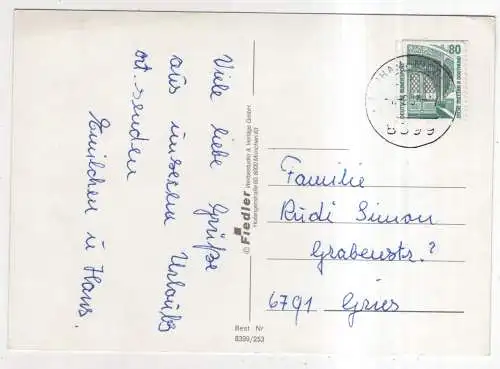 Viele liebe Grüße
aus unserem Urlaubs
ort senden
Emilchen u Hans.
© Fiedler Werbestudio & Verlags GmbH
8000 München 60
Best Nr
8399/253
80
DEUTSCHE BUNDESPOST
8399
Familie
Rudi Simon
Grabenstr.?
6791 Gries